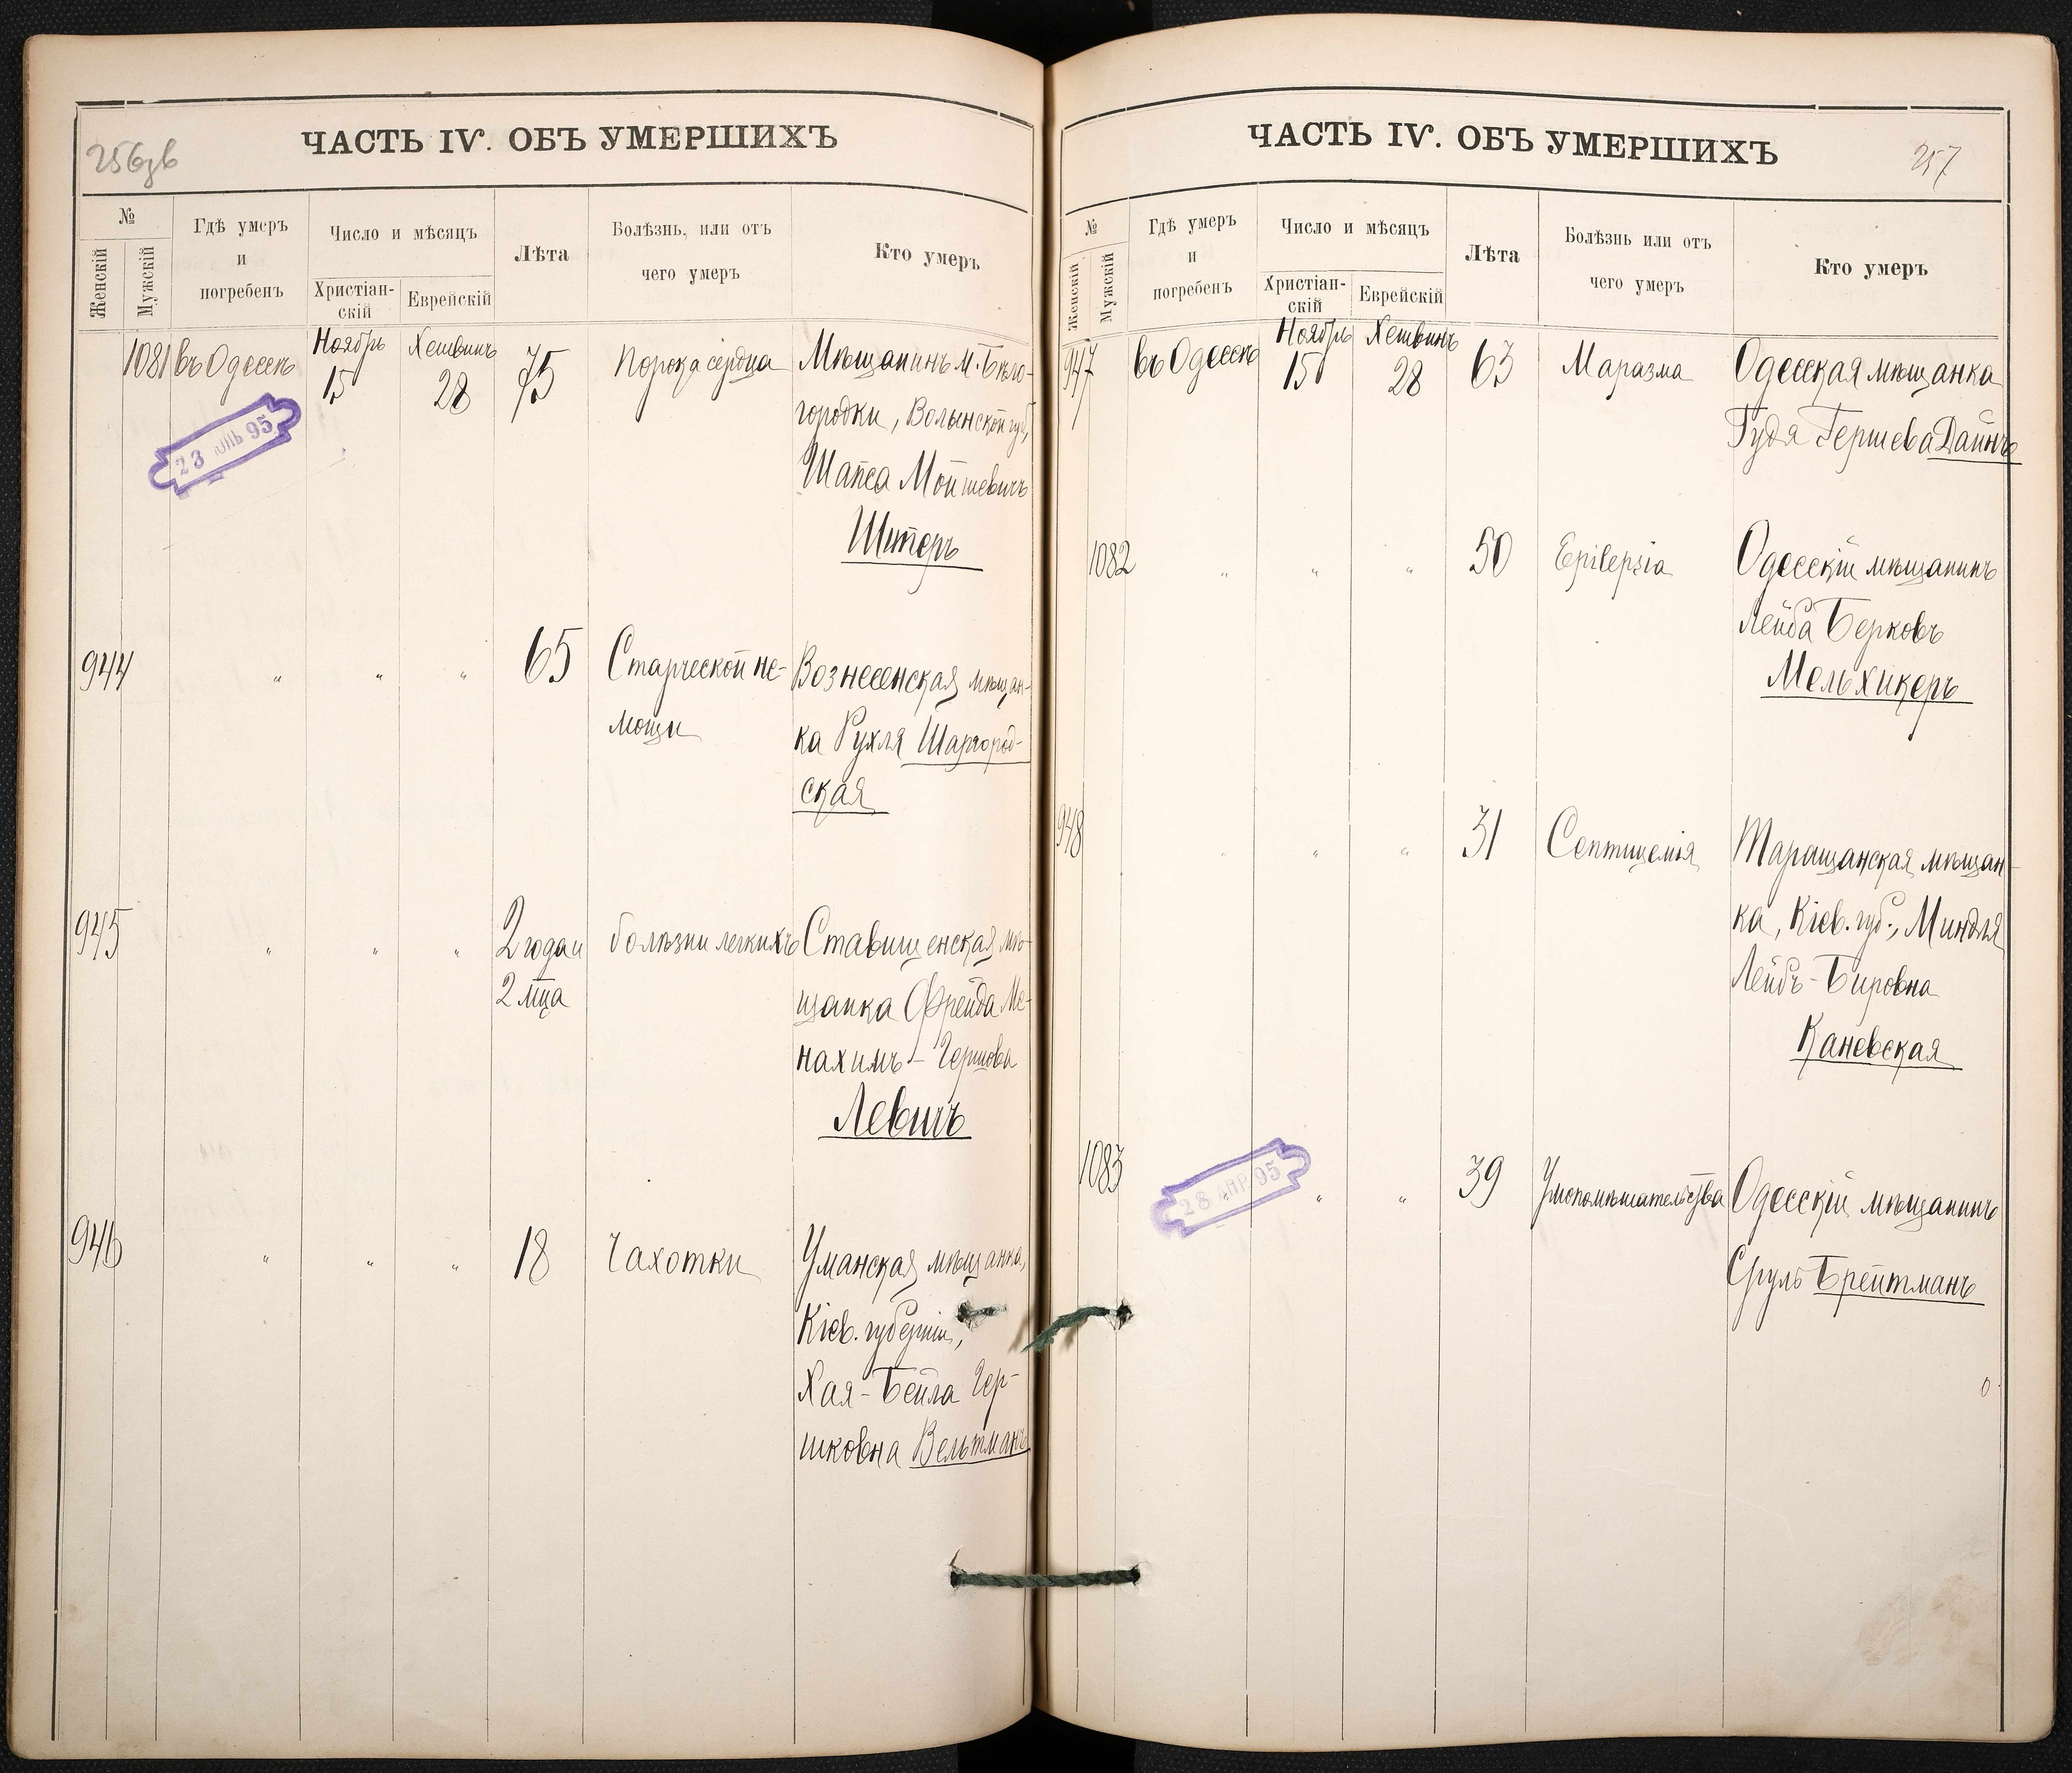 256зв
ЧАСТЬ IV. ОБЪ УМЕРШИХЪ
№
Женскій
Мужскій
Гдѣ умеръ
и
погребенъ
Число и мѣсяцъ
Христіан-
скій
Еврейскій
Лѣта
Болѣзнь, или отъ
чего умеръ
Кто умеръ
1081 въ Одессѣ Ноябрь 15 Хешвинъ 28 75 Порока сердца Мѣщанинъ М. Бѣло-
городки, Волынской губ.,
Шапса Мошкевичъ
Штеръ
23 95
944 " " " 65 Старческой не- Вознесенская мѣщан-
мощи ка Рухля Шаргород-
ская
945 " " " 2 года и болѣзни легкихъ Ставищенская мѣ-
2 мца щанка Фрейда Ме-
нахимъ-Гершова
Левичъ
946 " " " 18 Чахотки Уманская мѣщанка,
Кіев. губерніи,
Хая-Бейла Гер-
шковна Вельтманъ
257
ЧАСТЬ IV. ОБЪ УМЕРШИХЪ
№
Женскій
Мужскій
Гдѣ умеръ
и
погребенъ
Число и мѣсяцъ
Христіан-
скій
Еврейскій
Лѣта
Болѣзнь или отъ
чего умеръ
Кто умеръ
947 въ Одессѣ Ноябрь 15 Хешвинъ 28 63 Маразма Одесская мѣщанка
Гудя Гершева Дайнъ
1082 " " " 50 Epilepsia Одесскій мѣщанинъ
Лейба Берковъ
Мельхикеръ
948 " " " 31 Септицемія Таращанская мѣщан-
ка, Кіев. губ., Миндля
Лейбъ-Бировна
Каневская
1083 " " " 39 Умопомѣшательства Одесскій мѣщанинъ
Сруль Брейтманъ
28 АПР 95